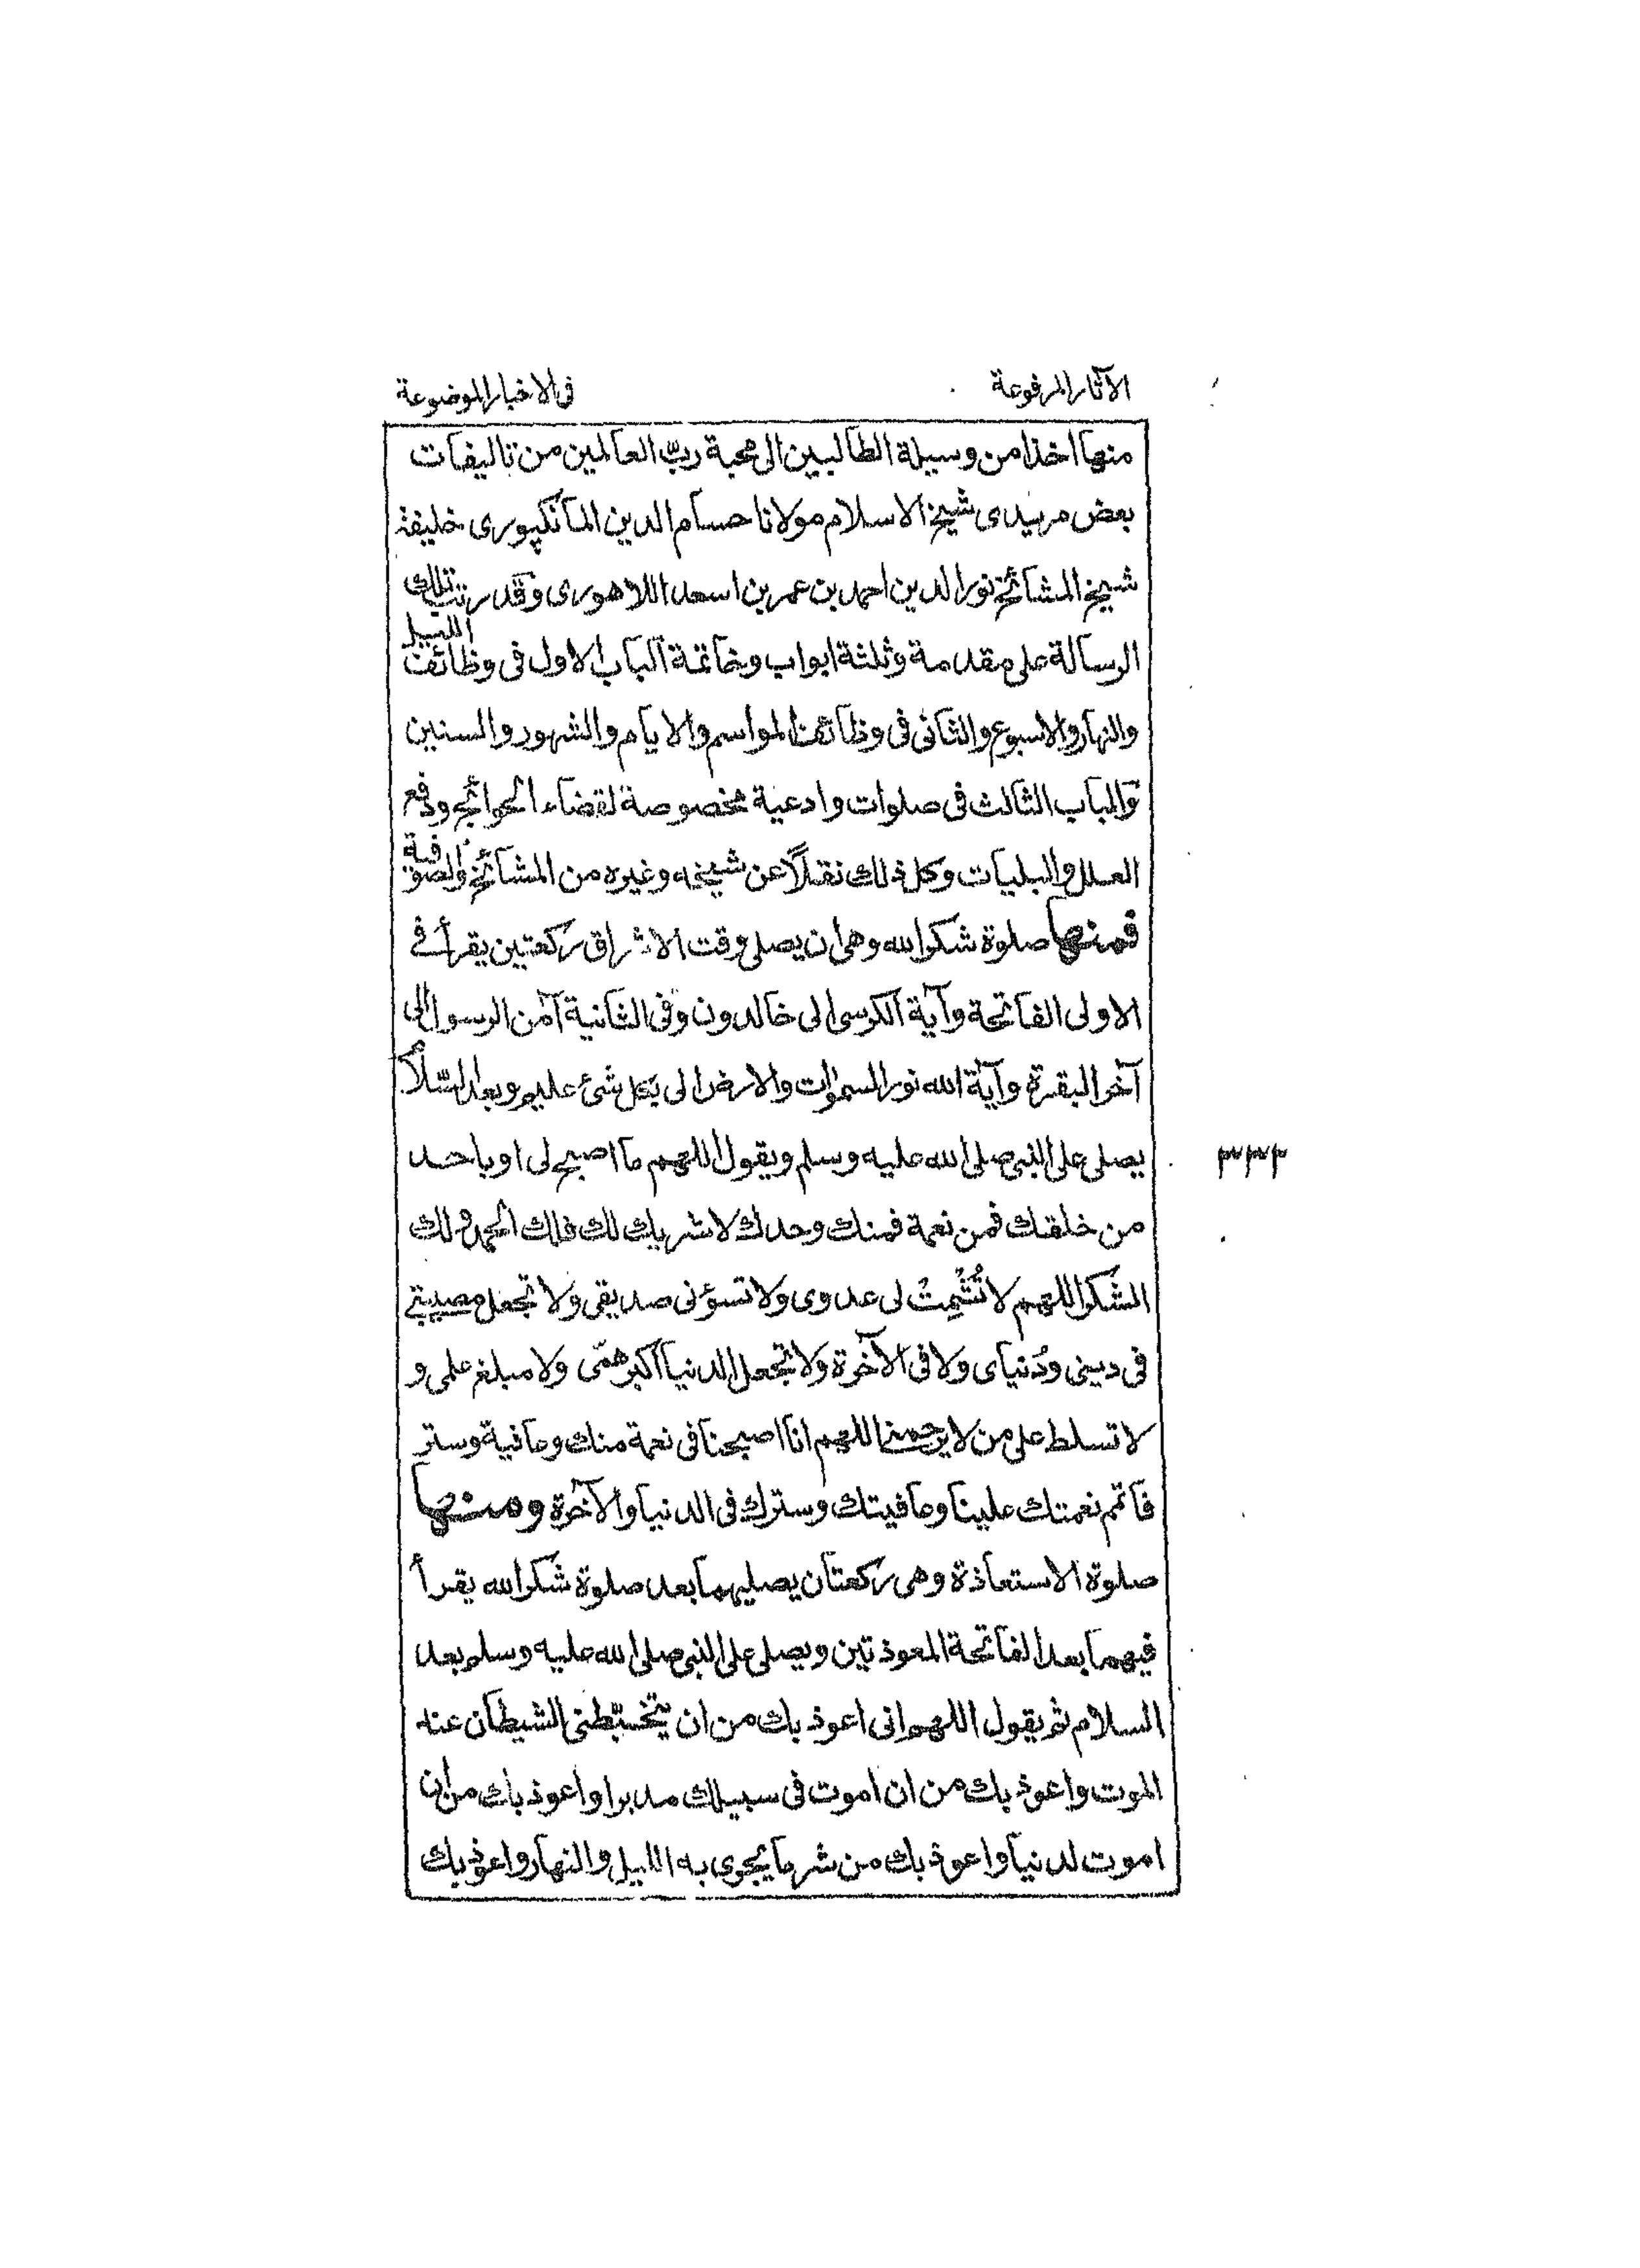 الآثار المرفوعة
فى الاخبار الموضوعة
منها اخذا من وسيلة الطالبين الى محبة ربّ العالمين من تاليفات
بعض مريدى شيخ الاسلام مولانا حسام الدين المانكپورى خليفة
شيخ المشائخ نور الدين احمد بن عمر بن اسعد اللاهورى وقد رتب تلك
الرسالة على مقدمة وثلثة ابواب وخاتمة الباب الاول فى وظائف الليل
والنهار والاسبوع والثانى فى وظائف المواسم والايام والشهور والسنين
والباب الثالث فى صلوات وادعية مخصوصة لقضاء الحوائج ودفع
العلل والبليات وكل ذلك نقلًا عن شيخه وغيره من المشائخ والصوفية
فمنها صلوة شكر الله وهى ان يصلى وقت الاشراق ركعتين يقرأ فى
الاولى الفاتحة وآية الكرسى الى خالدون وفى الثانية آمن الرسول الى
آخر البقرة وآية الله نور السموات والارض الى بكل شئ عليم وبعد السلام
يصلى على النبى صلى الله عليه وسلم ويقول اللهم ما اصبح لى او باحد
من خلقك فمن نعمة فمنك وحدك لا شريك لك فلك الحمد ولك
الشكر اللهم لا تُشْمِتْ لى عدوى ولا تسؤنى صديقى ولا تجعل مصيبتى
فى دينى ودنياى ولا فى الآخرة ولا تجعل الدنيا اكبر همّى ولا مبلغ علمى و
لا تسلط على من لا يرحمنا اللهم انا اصبحنا فى نعمة منك وعافية وستر
فاتمم نعمتك علينا وعافيتك وسترك فى الدنيا والآخرة ومنها
صلوة الاستعاذة وهى ركعتان يصليهما بعد صلوة شكر الله يقرأ
فيهما بعد الفاتحة المعوذتين ويصلى على النبى صلى الله عليه وسلم بعد
السلام ثم يقول اللهم انى اعوذ بك من ان يتخبّطنى الشيطان عند
الموت واعوذ بك من ان اموت فى سبيلك مدبرا واعوذ بك من ان
اموت لدنيا واعوذ بك من شر ما يجرى به الليل والنهار واعوذ بك